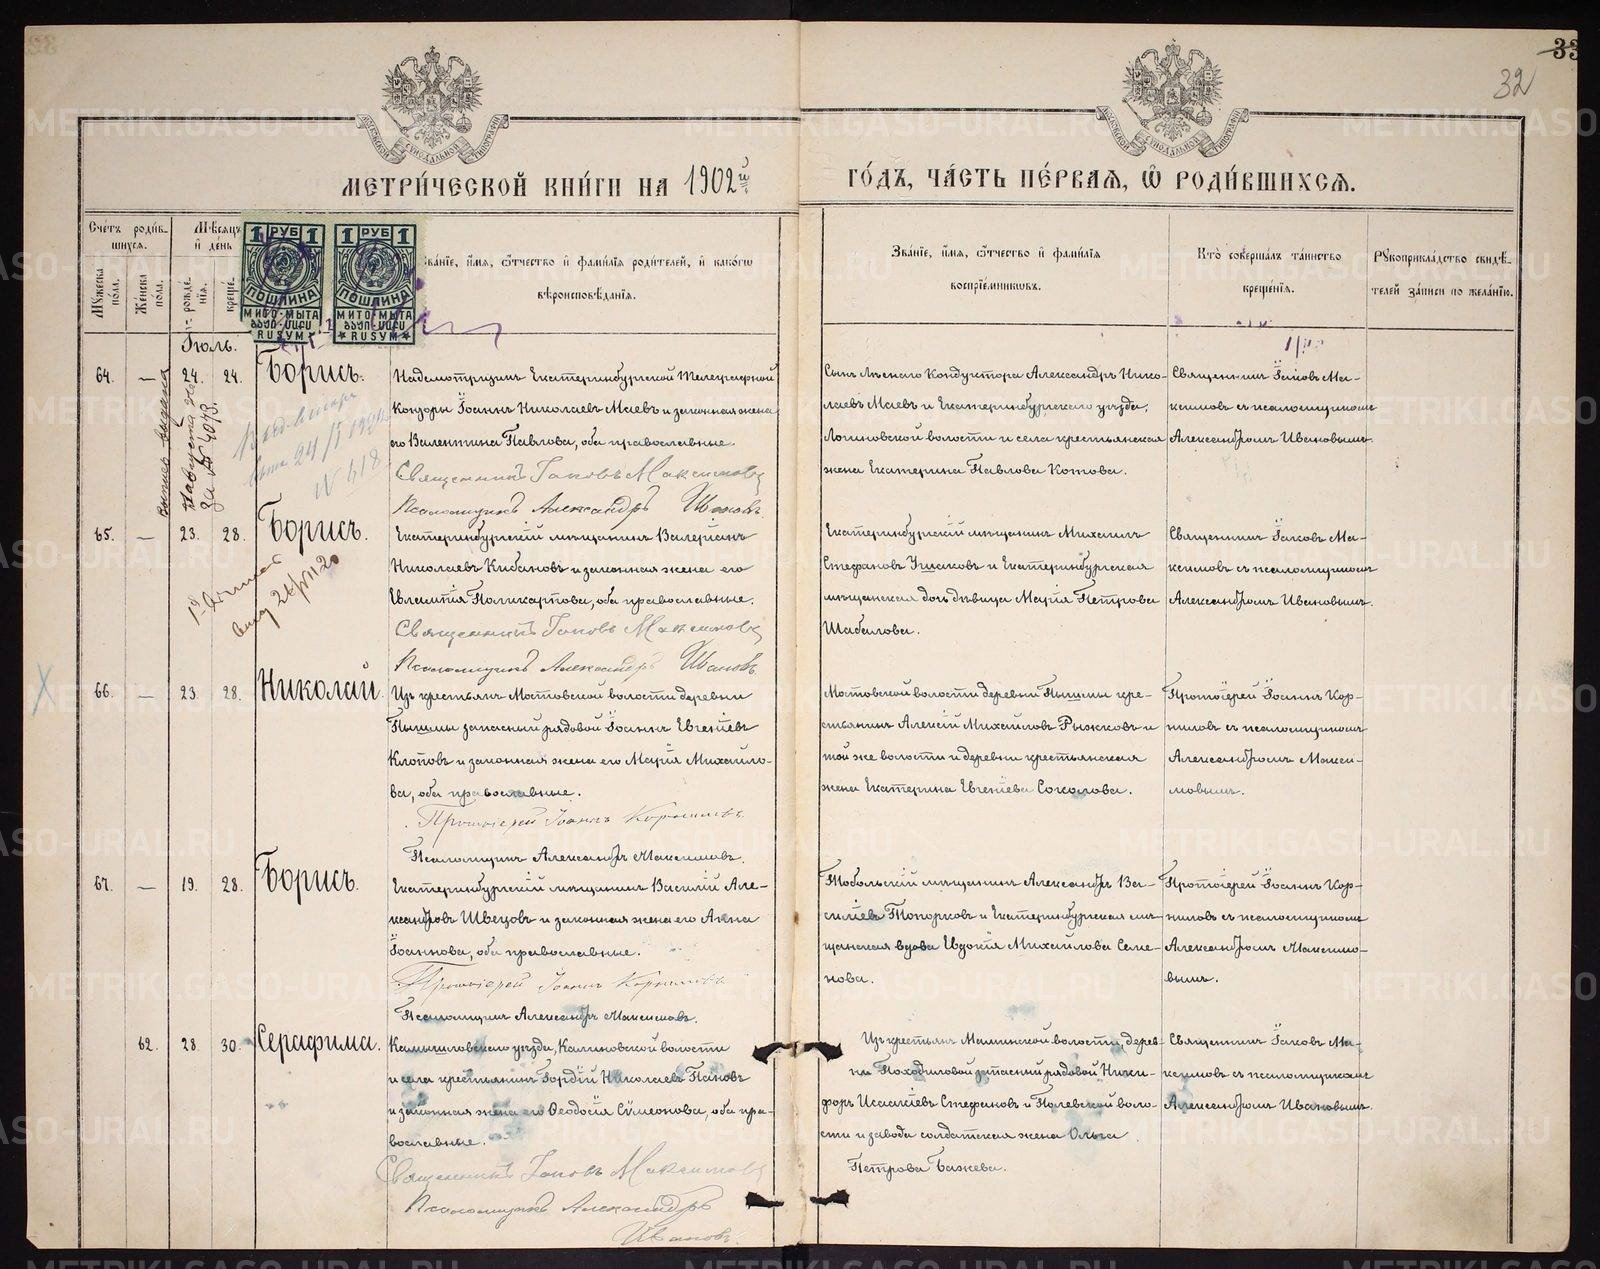 33
32
МОСКОВСКОЙ СѴНОДАЛЬНОЙ ТИПОГРАФІИ
МОСКОВСКОЙ СѴНОДАЛЬНОЙ ТИПОГРАФІИ
МЕТРИ́ЧЕСКОЙ КНИ́ГИ НА 1902й
ГО́ДЪ, ЧА́СТЬ ПЕ́РВАѦ, Ѡ РОДИ́ВШИХСѦ.
Сче́тъ роди́в-
шихсѧ.
Мꙋжеска по́ла.
Же́нска по́ла.
Мѣ́сѧцъ и҆ де́нь
рожде́нїѧ.
креще́
1 РУБ 1
ПОШЛИНА
МИТО-МЫТА
RUSYM
1 РУБ 1
ПОШЛИНА
МИТО-МЫТА
RUSYM
Зва́нїе, и҆́мѧ, ѻ҆́тчество и҆ фами́лїѧ роди́телей, и҆ како́гѡ
вѣроисповѣ́данїѧ.
Зва́нїе, и҆́мѧ, ѻ҆́тчество и҆ фами́лїѧ
воспрїе́мникѡвъ.
Кто̀ соверша́лъ та́инство
креще́нїѧ.
Рꙋкоприкла́дство свидѣ́-
телей за́писи по жела́нїю.
Іюль.
64. — 24. 24. Борисъ.
Надсмотрщикъ Екатеринбургской телеграфной
Конторы Іоаннъ Николаевъ Маевъ и законная жена
его Валентина Павлова, оба православные.
Священникъ Іаковъ Максимовъ
Псаломщикъ Александръ Ивановъ.
Сынъ Лѣснаго Кондуктора Александръ Нико-
лаевъ Маевъ и Екатеринбургскаго уѣзда,
Логиновской волости и села крестьянская
жена Екатерина Павлова Котова.
Священникъ Іаковъ Ма-
ксимовъ съ псаломщикомъ
Александромъ Ивановымъ.
Выпись выдана
за № 4093.
24/I 1924
№ 418
65. — 23. 28. Борисъ.
Екатеринбургскій мѣщанинъ Валеріанъ
Николаевъ Кибановъ и законная жена его
Евлампія Поликарпова, оба православные.
Священникъ Іаковъ Максимовъ
Псаломщикъ Александръ Ивановъ.
Екатеринбургскій мѣщанинъ Михаилъ
Стефановъ Ушаковъ и Екатеринбургская
мѣщанская дочь дѣвица Марія Петрова
Шабалова.
Священникъ Іаковъ Ма-
ксимовъ съ псаломщикомъ
Александромъ Ивановымъ.
66. — 23. 28. Николай.
Изъ крестьянъ Мостовской волости деревни
Пышмы запасный рядовой Іоаннъ Евгеніевъ
Клоповъ и законная жена его Марія Михайло-
ва, оба православные.
Протоіерей Іоаннъ Корниловъ.
Псаломщикъ Александръ Максимовъ.
Мостовской волости деревни Пышмы кре-
стьянинъ Алексій Михайловъ Рыжковъ и
той же волости и деревни крестьянская
жена Екатерина Евгеніева Соколова.
Протоіерей Іоаннъ Кор-
ниловъ съ псаломщикомъ
Александромъ Макси-
мовымъ.
67. — 19. 28. Борисъ.
Екатеринбургскій мѣщанинъ Василій Але-
ксандровъ Швецовъ и законная жена его Анна
Іоаннова, оба православные.
Протоіерей Іоаннъ Корниловъ
Псаломщикъ Александръ Максимовъ.
Тобольскій мѣщанинъ Александръ Ва-
силіевъ Топорковъ и Екатеринбургская мѣ-
щанская вдова Евдокія Михайлова Семе-
нова.
Протоіерей Іоаннъ Кор-
ниловъ съ псаломщикомъ
Александромъ Максимо-
вымъ.
62. 28. 30. Серафима.
Камышловскаго уѣзда, Калиновской волости
и села крестьянинъ Гордій Николаевъ Пановъ
и законная жена его Ѳеодосія Сѵмеонова, оба пра-
вославные.
Священникъ Іаковъ Максимовъ
Псаломщикъ Александръ
Ивановъ.
Изъ крестьянъ Маминской волости, дерев-
ни Походиловой запасный рядовой Ники-
форъ Исаакіевъ Стефановъ и Полевской воло-
сти и завода солдатская жена Ольга
Петрова Бажева.
Священникъ Іаковъ Ма-
ксимовъ съ псаломщикомъ
Александромъ Ивановымъ.
METRIKI.GASO-URAL.RU